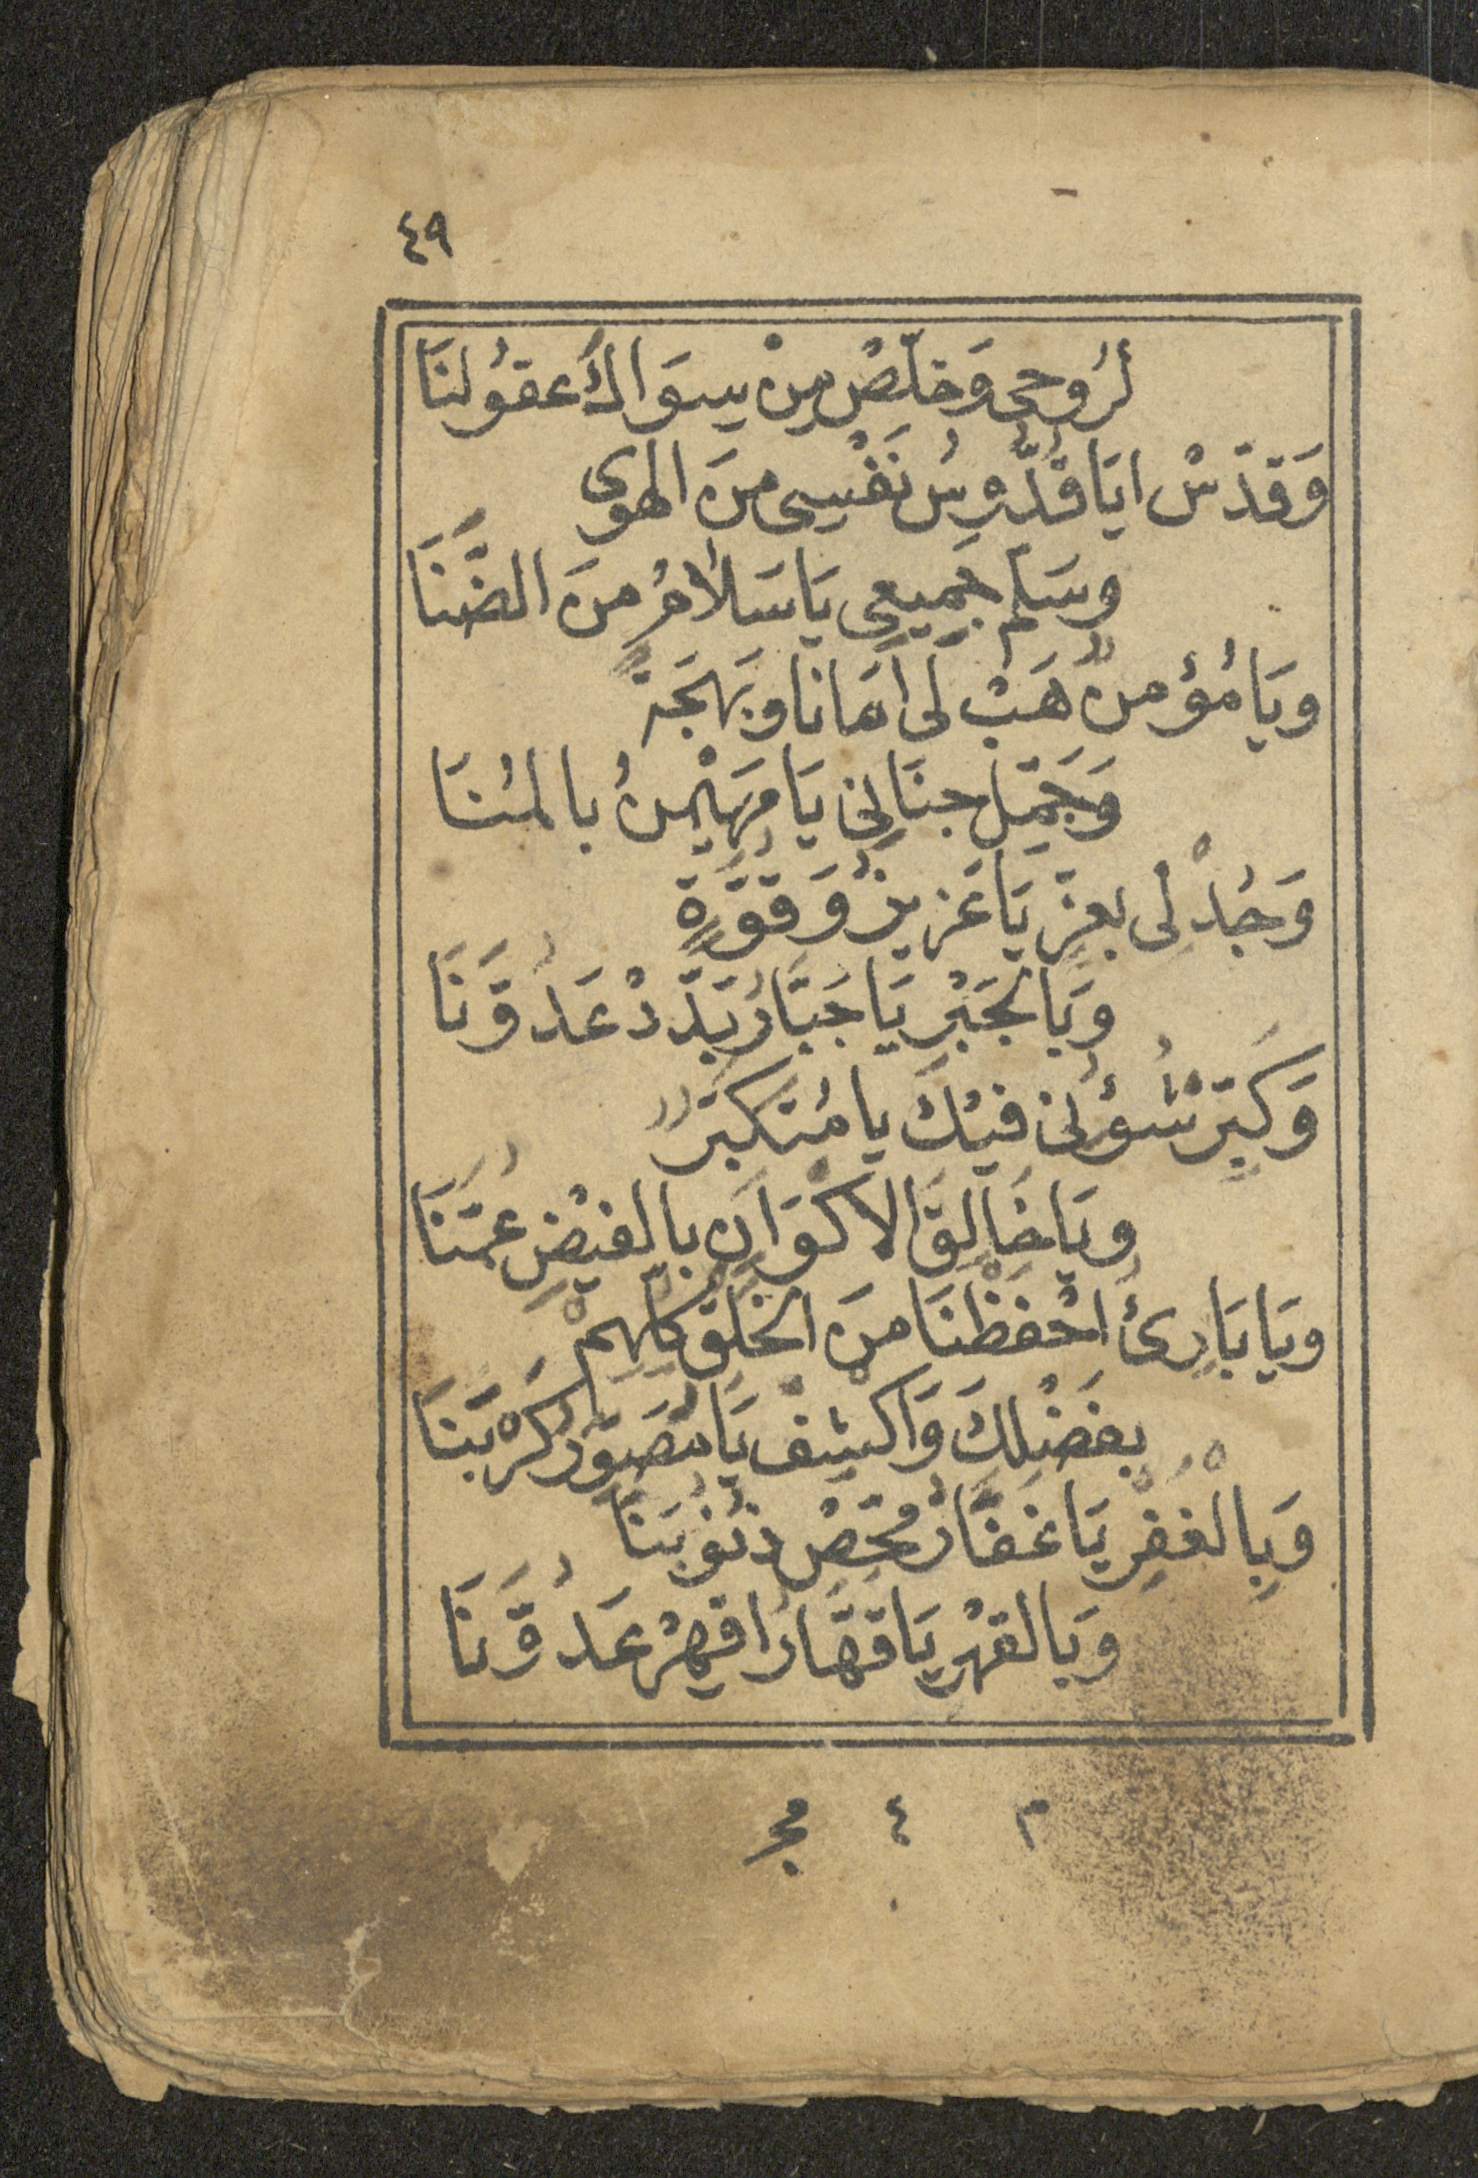 ٤٩
لرُوحِى وَخَلّصْ مِنْ سِوَاكَ عقُولنَا
وَقَدّسْ ايَا قُدُّوسُ نَفْسِى منَ الهوى
وسَلم جَمِيعِى يَا سَلَامُ منَ الضَّنَا
ويَا مُؤمنٌ هَبْ لى اَمَانا وبَهجَةً
وَجَمّل جنَانِى يَا مُهَيْمنُ بالمُنَا
وَجُدْ لى بعِزٍّ يَا عَزيزُ وَقوَّةٍ
وَبَالجَبْرِ يَا جَبَّارُ بَدّدْ عَدُوَّنَا
وَكَبّر شُؤنى فيْكَ يا مُتكَبّرٌ
ويَا خَالِقَ الاكْوَانِ بالفيْضِ عُمَّنَا
ويَا بَارِئُ احْفَظْنَا منَ الخلْقِ كلّهِمْ
بفَضْلِكَ وَاكشِفْ يَا مُصَوّرُ كَرْبَنَا
وَبِالْغفرِ يَا غَفَّارُ مَحِّصْ ذنُوبَنَا
وَبَالقهْرِ يَا قَهَّارُ اقهِرْ عَدُوَّنَا
م ٤ مجر